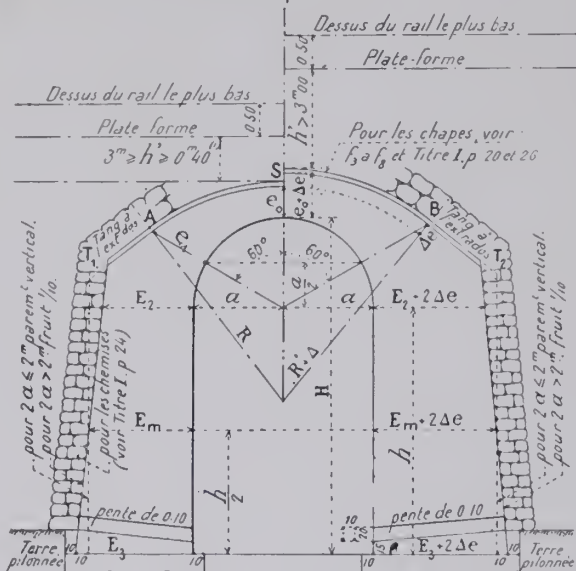 Dessus du rail le plus bas
0 50
Plate-forme
h' > 3m00
Dessus du rail le plus bas
0 50
Plate forme
3m ≥ h' ≥ 0m40
Pour les chapes, voir
f3 à f8 et Titre I. p 20 et 26
S
Δe
e0
e0
A
B
Tang à l'extrados
Tang à l'extrados
T1
T2
eA
Δe
60°
60°
a/2
E2
a
a
E2 + 2Δe
R
R'
Δ
H
pour 2a ≤ 2m paremt vertical.
pour 2a > 2m fruit 1/10.
pour les chemises
(voir Titre I. p 24)
pour 2a ≤ 2m paremt vertical.
pour 2a > 2m fruit 1/10.
Em
Em + 2Δe
h
h/2
pente de 0.10
pente de 0.10
10
20
15
E3
E3 + 2Δe
Terre
pilonnée
10
10
10
10
10
Terre
pilonnée